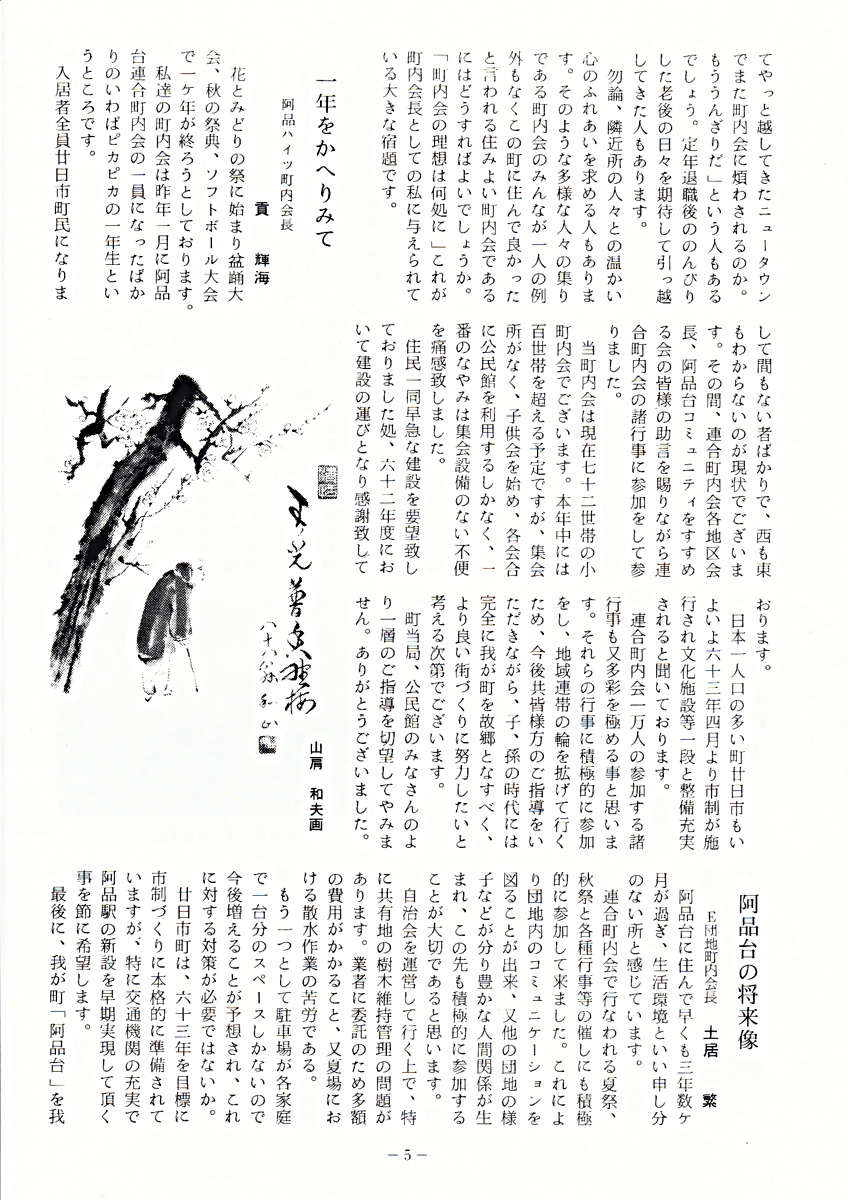 てやっと越してきたニュータウン
でまた町内会に煩わされるのか。
もううんざりだ」という人もある
でしょう。定年退職後ののんびり
した老後の日々を期待して引っ越
してきた人もあります。
勿論、隣近所の人々との温かい
心のふれあいを求める人もありま
す。そのような多様な人々の集り
である町内会のみんなが一人の例
外もなくこの町に住んで良かった
と言われる住みよい町内会である
にはどうすればよいでしょうか。
「町内会の理想は何処に」これが
町内会長としての私に与えられて
いる大きな宿題です。
一年をかへりみて
阿品ハイツ町内会長
貢 輝海
花とみどりの祭に始まり盆踊大
会、秋の祭典、ソフトボール大会
で一ケ年が終ろうとしております。
私達の町内会は昨年一月に阿品
台連合町内会の一員になったばか
りのいわばピカピカの一年生とい
うところです。
入居者全員廿日市町民になりま
して間もない者ばかりで、西も東
もわからないのが現状でございま
す。その間、連合町内会各地区会
長、阿品台コミュニティをすすめ
る会の皆様の助言を賜りながら連
合町内会の諸行事に参加をして参
りました。
当町内会は現在七十二世帯の小
町内会でございます。本年中には
百世帯を超える予定ですが、集会
所がなく、子供会を始め、各会合
に公民館を利用するしかなく、一
番のなやみは集会設備のない不便
を痛感致しました。
住民一同早急な建設を要望致し
ておりました処、六十二年度にお
いて建設の運びとなり感謝致して
おります。
日本一人口の多い町廿日市もい
よいよ六十三年四月より市制が施
行され文化施設等一段と整備充実
されると聞いております。
連合町内会一万人の参加する諸
行事も又多彩を極める事と思いま
す。それらの行事に積極的に参加
をし、地域連帯の輪を拡げて行く
ため、今後共皆様方のご指導をい
ただきながら、子、孫の時代には
完全に我が町を故郷となすべく、
より良い街づくりに努力したいと
考える次第でございます。
町当局、公民館のみなさんのよ
り一層のご指導を切望してやみま
せん。ありがとうございました。
山肩 和夫画
阿品台の将来像
E団地町内会長 土居 繁
阿品台に住んで早くも三年数ケ
月が過ぎ、生活環境といい申し分
のない所と感じています。
連合町内会で行なわれる夏祭、
秋祭と各種行事等の催しにも積極
的に参加して来ました。これによ
り団地内のコミュニケーションを
図ることが出来、又他の団地の様
子などが分り豊かな人間関係が生
まれ、この先も積極的に参加する
ことが大切であると思います。
自治会を運営して行く上で、特
に共有地の樹木維持管理の問題が
あります。業者に委託のため多額
の費用がかかること、又夏場にお
ける散水作業の苦労である。
もう一つとして駐車場が各家庭
で一台分のスペースしかないので
今後増えることが予想され、これ
に対する対策が必要ではないか。
廿日市町は、六十三年を目標に
市制づくりに本格的に準備されて
いますが、特に交通機関の充実で
阿品駅の新設を早期実現して頂く
事を節に希望します。
最後に、我が町「阿品台」を我
－5－